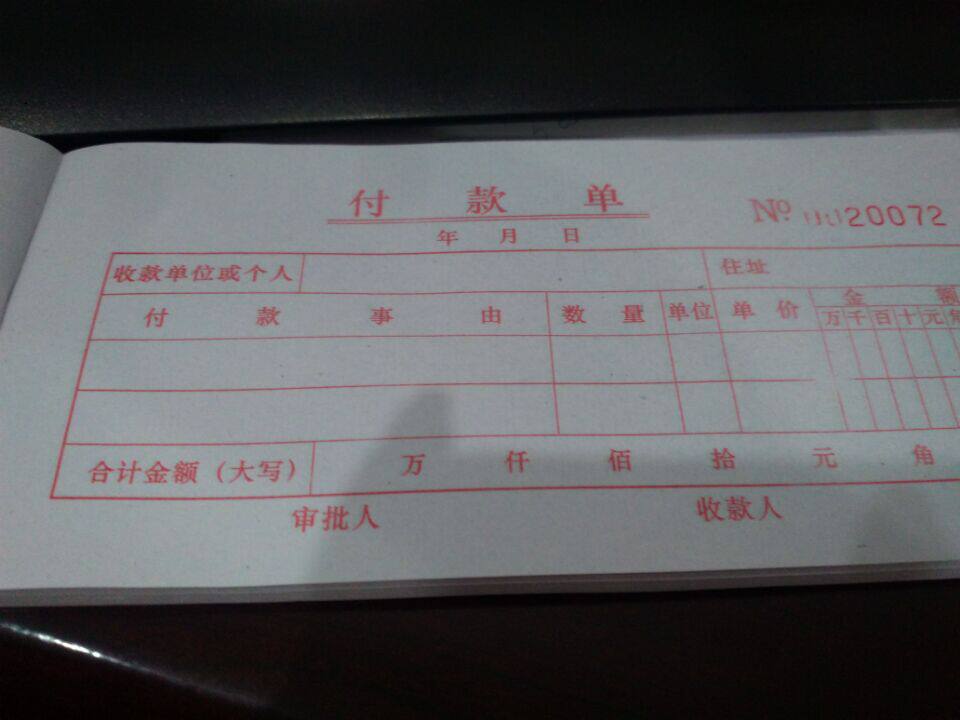 付款单
№ 0020072
年 月 日
收款单位或个人 住址
付款事由 数量 单位 单价 金额
万 千 百 十 元 角
合计金额（大写） 万 仟 佰 拾 元 角
审批人 收款人